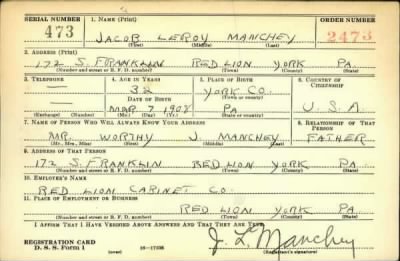 SERIAL NUMBER 1. NAME (Print) ORDER NUMBER
473 JACOB LEROY MANCHEY 2473
(First) (Middle) (Last)
2. ADDRESS (Print)
172 S. FRANKLIN RED LION YORK PA.
(Number and street or R. F. D. number) (Town) (County) (State)
3. TELEPHONE 4. AGE IN YEARS 5. PLACE OF BIRTH 6. COUNTRY OF CITIZENSHIP
— 32 YORK CO.
DATE OF BIRTH
— MAR. 7 1908 PA U.S.A
(Exchange) (Number) (Mo.) (Day) (Yr.) (Town or county) (State or country)
7. NAME OF PERSON WHO WILL ALWAYS KNOW YOUR ADDRESS 8. RELATIONSHIP OF THAT PERSON
MR. WORTHY J. MANCHEY FATHER
(Mr., Mrs., Miss) (First) (Middle) (Last)
9. ADDRESS OF THAT PERSON
172 S. FRANKLIN RED LION YORK PA.
(Number and street or R. F. D. number) (Town) (County) (State)
10. EMPLOYER'S NAME
RED LION CABINET CO.
11. PLACE OF EMPLOYMENT OR BUSINESS
RED LION YORK PA.
(Number and street or R. F. D. number) (Town) (County) (State)
I AFFIRM THAT I HAVE VERIFIED ABOVE ANSWERS AND THAT THEY ARE TRUE.
REGISTRATION CARD
D. S. S. Form 1 (over) J. L. Manchey
(Registrant's signature)